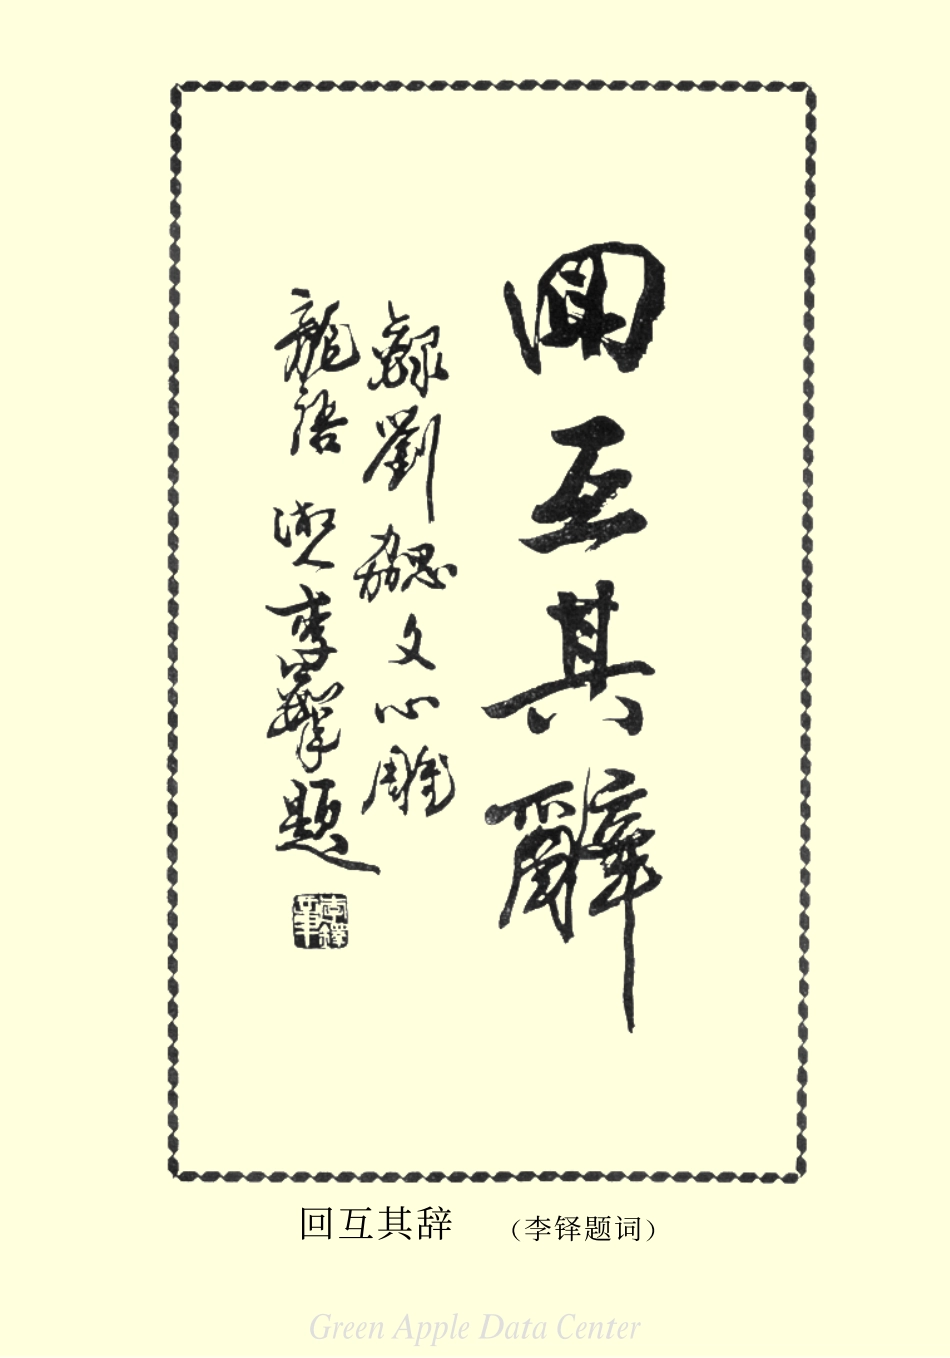 回互其辭
錄劉勰文心雕
龍語 湘人李鐸題
李鐸
回互其辞 （李铎题词）
Green Apple Data Center